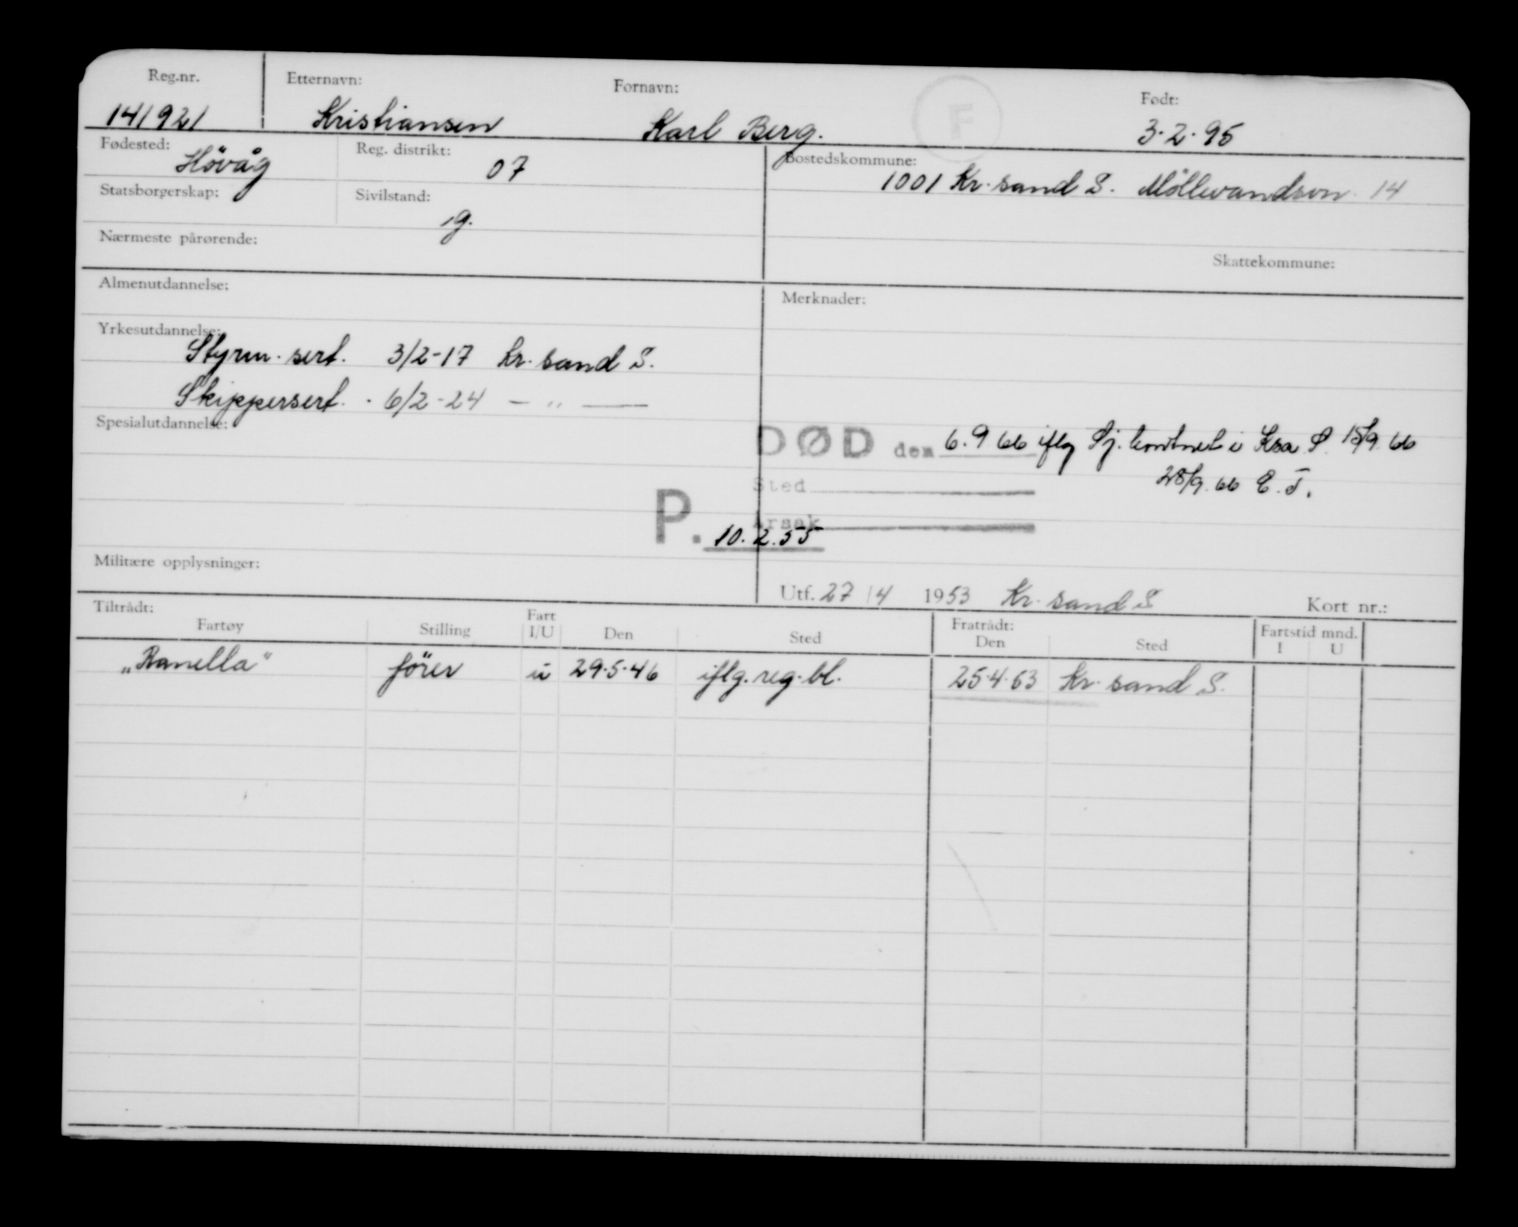 Reg.nr. Etternavn: Fornavn: F Født:
141921 Kristiansen Karl Berg. 3.2.95
Fødested: Høvåg Reg. distrikt: 07 Bostedskommune: 1001 Kr.sand S. 14
Statsborgerskap: Sivilstand: g.
Nærmeste pårørende: Skattekommune:
Almenutdannelse: Merknader:
Yrkesutdannelse:
Styrm. sert. 3/2-17 Kr. sand S.
Skippersert. 6/2-24 — " —
Spesialutdannelse:
DØD den 6.9 66 iflg Sj. i Ksa S. 15/9. 66
Sted 28/9. 66 E. T.
Årsak
P. 10.2.55
Militære opplysninger:
Utf. 27/4 1953 Kr. sand S Kort nr.:
Tiltrådt: Fratrådt:
Fartøy Stilling Fart I/U Den Sted Den Sted Fartstid mnd. I U
„Ranella" fører u 29.5.46 iflg. reg. bl. 25.4.53 Kr. sand S.